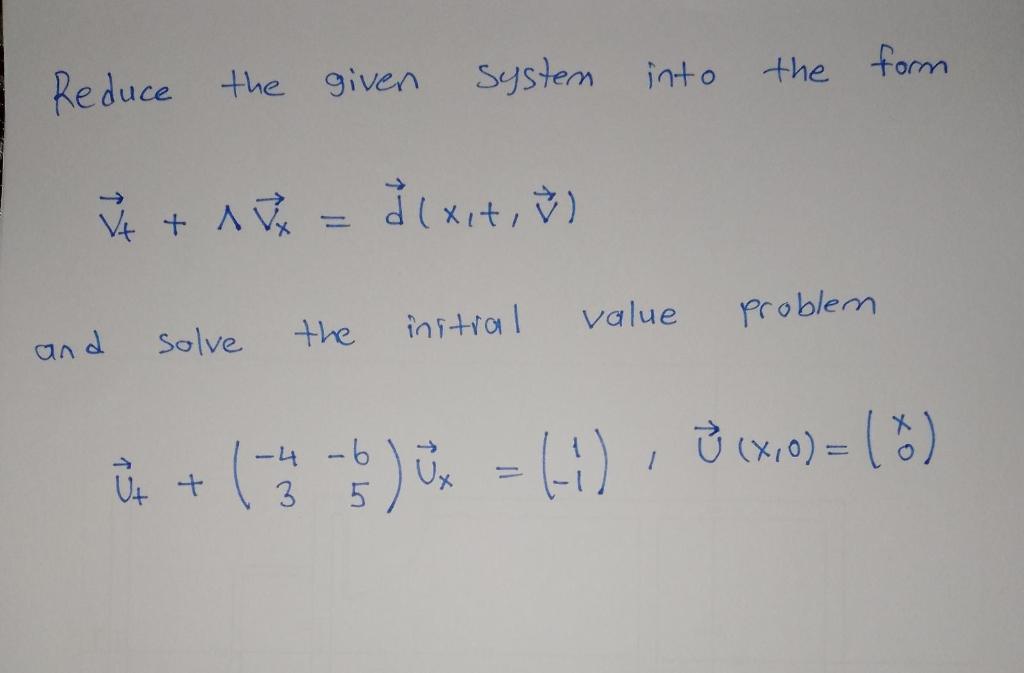 Reduce the given system into the form
V⃗t + Λ V⃗x = d⃗(x,t,v⃗)
and solve the initial value problem
U⃗t + (-4 -6
3 5) U⃗x = (1
-1) , U⃗(x,0) = (x
0)